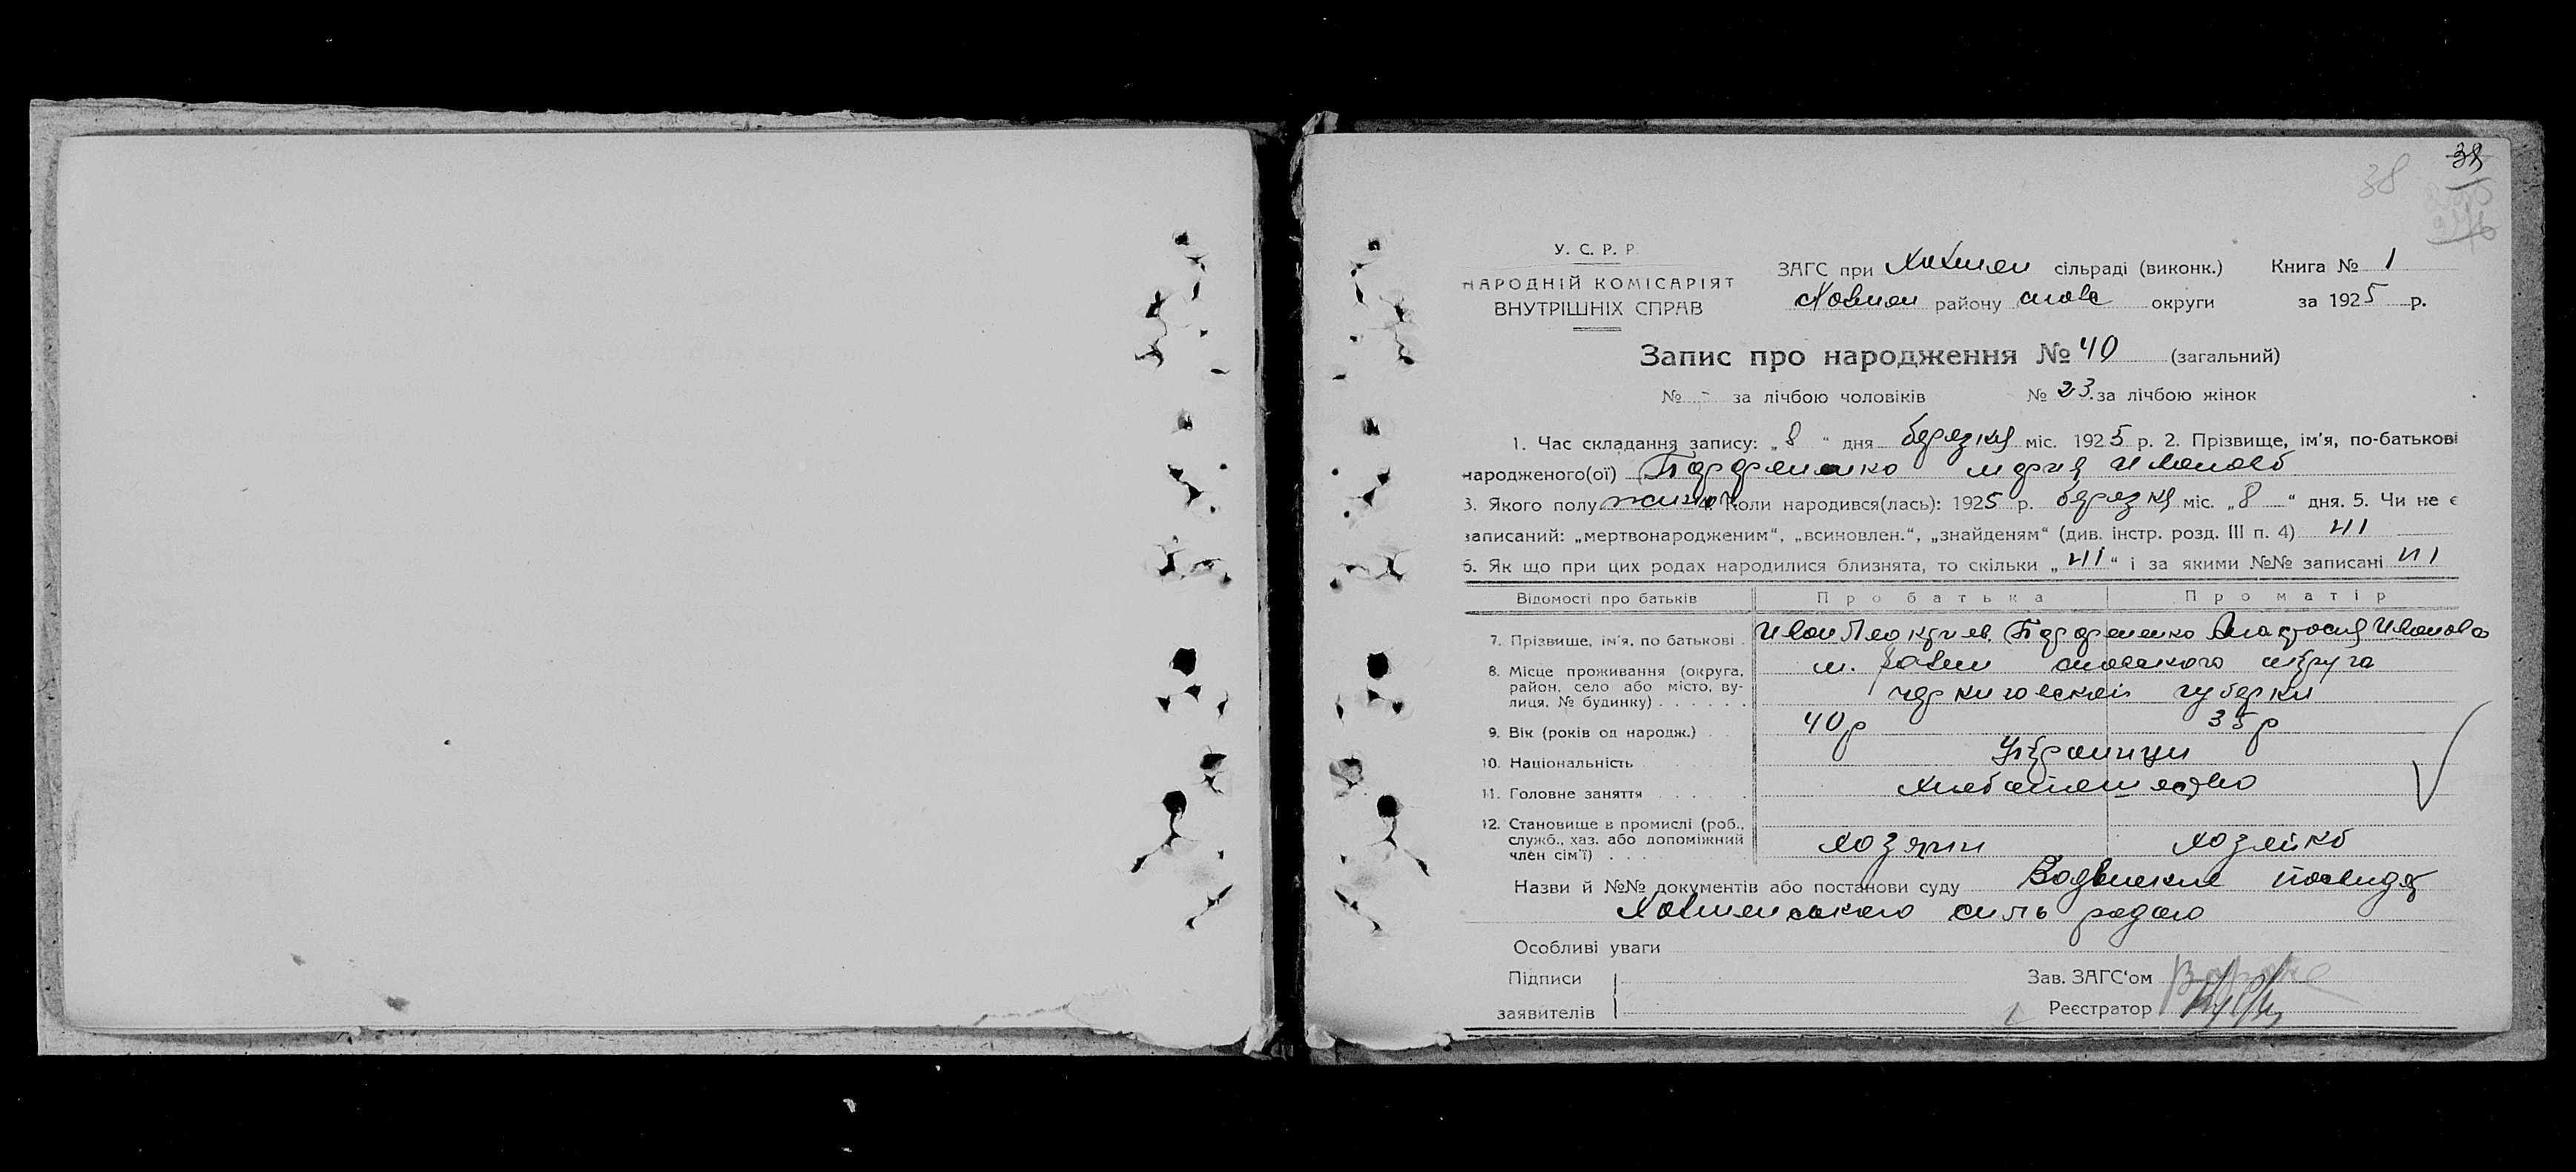 38
38
У. С. Р. Р.
НАРОДНІЙ КОМІСАРІЯТ
ВНУТРІШНІХ СПРАВ
ЗАГС при Холмен сільраді (виконк.) Книга № 1
Холмен району снов округи за 1925 р.
Запис про народження № 40 (загальний)
№ - за лічбою чоловіків № 23 за лічбою жінок
1. Час складання запису: „8“ дня березня міс. 1925 р. 2. Прізвище, ім'я, по-батькові
народженого(ої) Мария Иванов
3. Якого полу жино 4. Коли народився(лась): 1925 р. березня міс. „8“ дня. 5. Чи не є
записаний: „мертвонародженим“, „всиновлен.“, „знайденям“ (див. інстр. розд. III п. 4) ні
6. Як що при цих родах народилися близнята, то скільки „ні“ і за якими №№ записані ні
Відомості про батьків Про батька Про матір
7. Прізвище, ім'я, по батькові Иван Иванова
8. Місце проживання (округа, район, село або місто, вулиця, № будинку) м. Холми округа
губерни
9. Вік (років од народж.) 40 р 35 р
10. Національність Украинци
11. Головне заняття
12. Становище в промислі (роб., служб., хаз. або допоміжний член сім'ї) хозяин хозяйка
Назви й №№ документів або постанови суду посвид
Холменського силь радою
Особливі уваги
Підписи
заявителів
Зав. ЗАГС'ом
Реєстратор